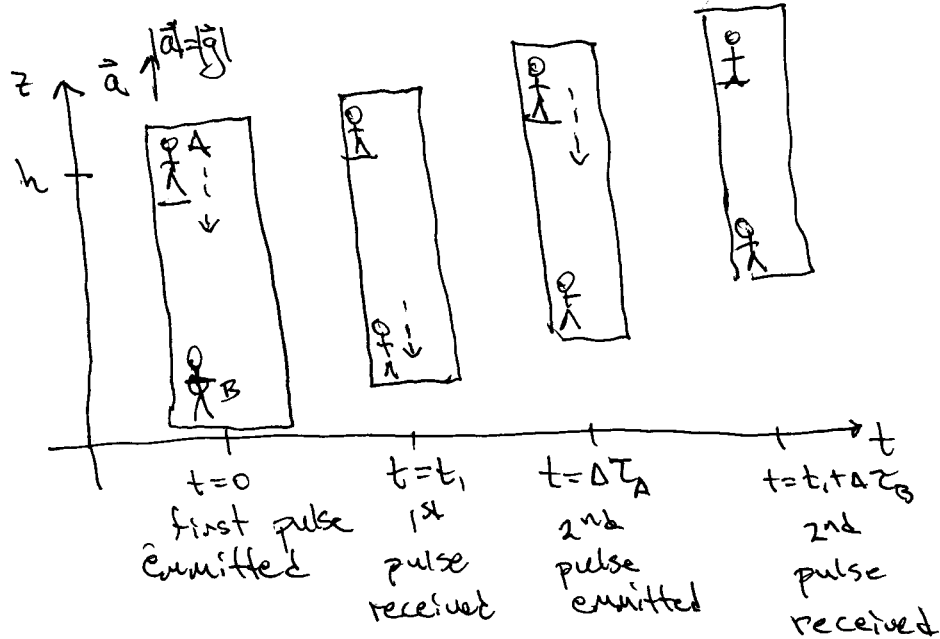 z
a⃗ |a⃗|=|g⃗|
h
A
B
t
t=0
first pulse
emmitted
t=t₁
1st
pulse
received
t=Δτ_A
2nd
pulse
emmitted
t=t₁+Δτ_B
2nd
pulse
received